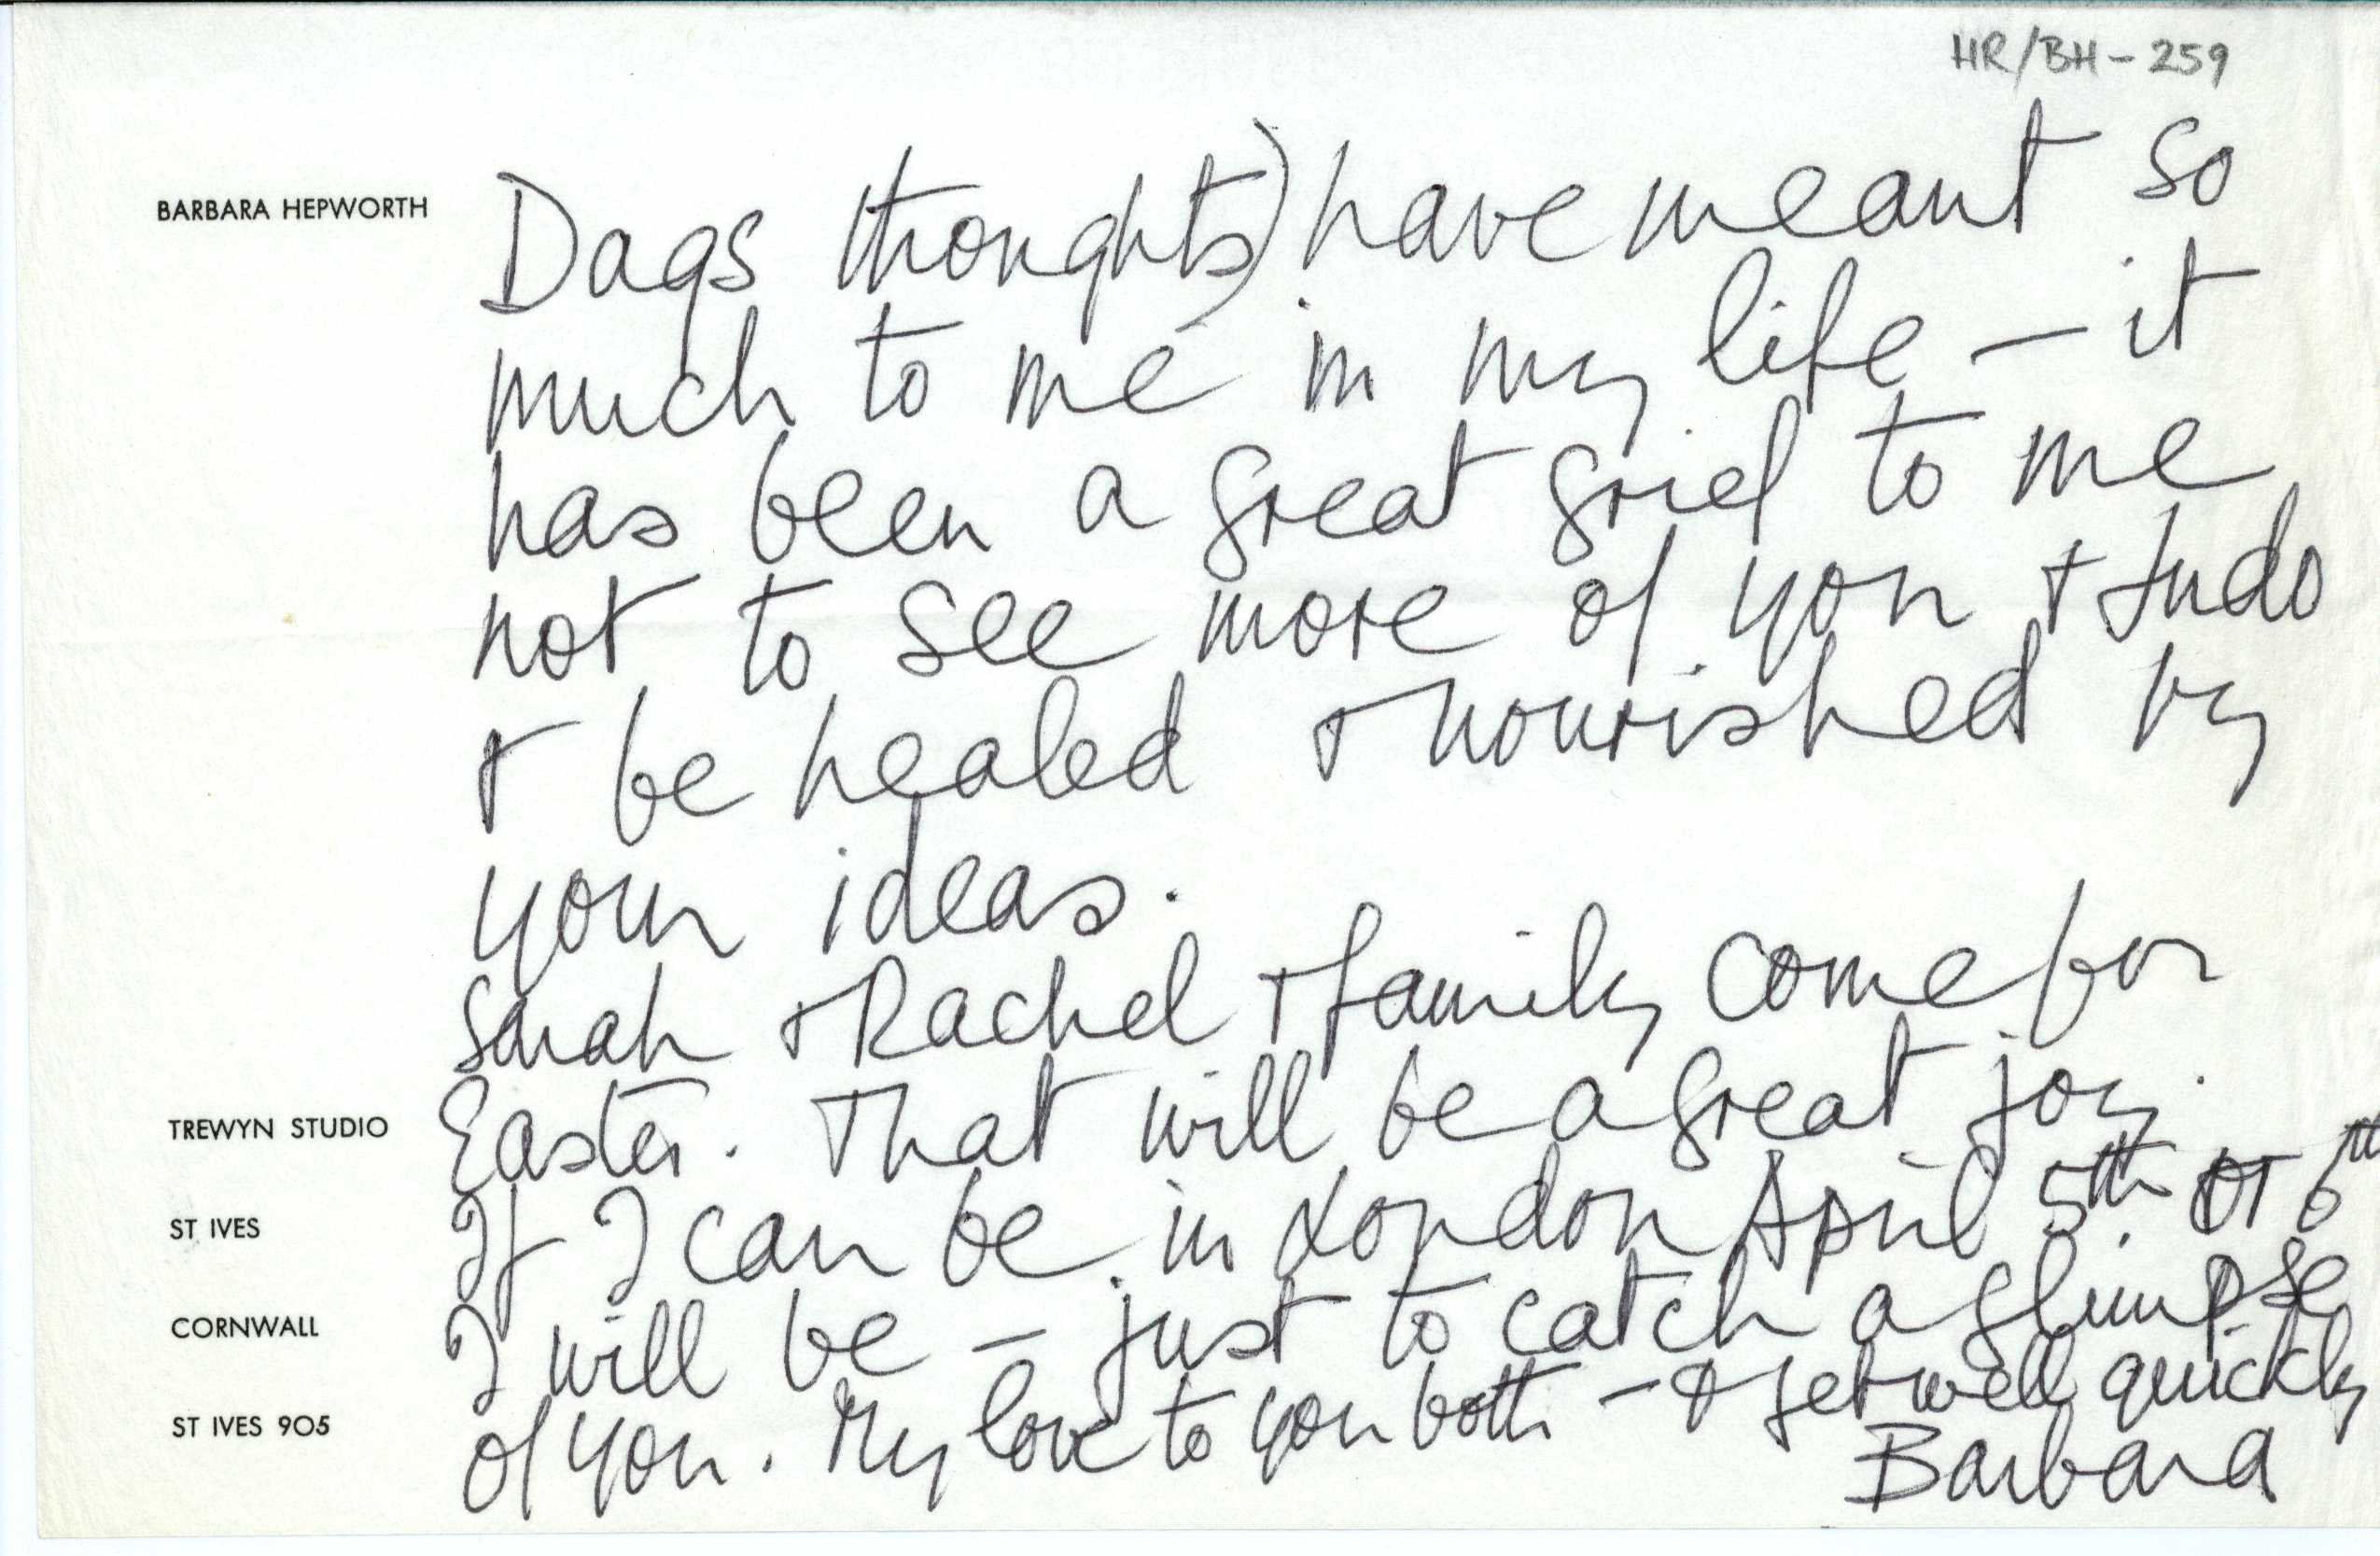 HR/BH-259
BARBARA HEPWORTH
Dags thoughts) have meant so
much to me in my life – it
has been a great grief to me
not to see more of you + Ludo
+ be healed + nourished by
your ideas.
Sarah + Rachel + family come for
Easter. That will be a great joy.
If I can be in London April 5th or 6th
I will be – just to catch a glimpse
of you. My love to you both – + get well quickly
Barbara
TREWYN STUDIO
ST IVES
CORNWALL
ST IVES 905